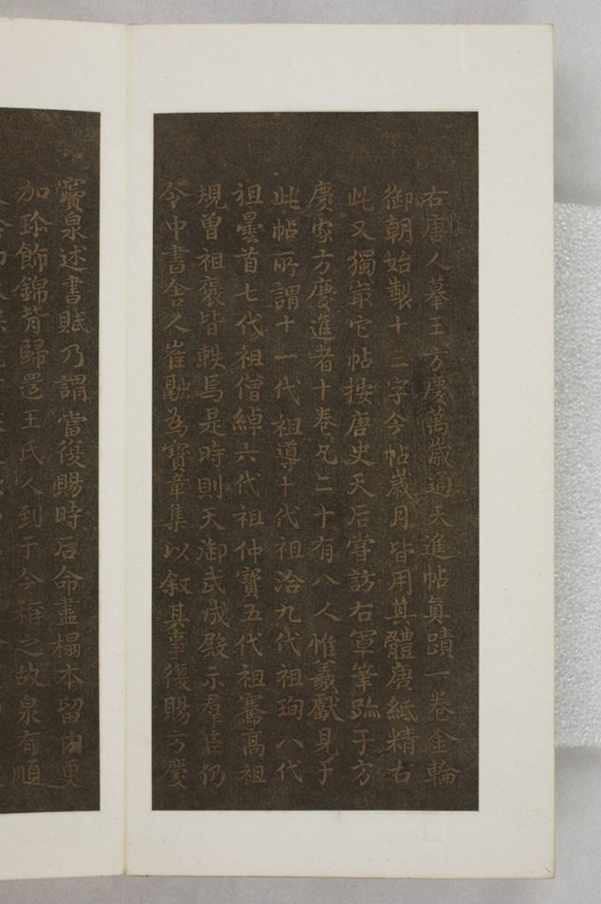 右唐人摹王方慶萬歲通天進帖真蹟一卷金輪
御朝始製十三字今帖歲月皆用真體唐紙精古
此又獨冣它帖按唐史天后嘗訪右軍筆跡于方
慶家方慶進者十卷凡二十有八人惟羲獻見于
此帖所謂十一代祖導十代祖洽九代祖珣八代
祖曇首七代祖僧綽六代祖仲寶五代祖騫高祖
規曽祖褒皆軼焉是時則天御武成殿示羣臣仍
令中書舍人崔融為寶章集以叙其事復賜方慶
竇泉述書賦乃謂當復賜時后命盡榻本留内更
加珎飾錦背歸還王氏人到于今稱之故泉有順